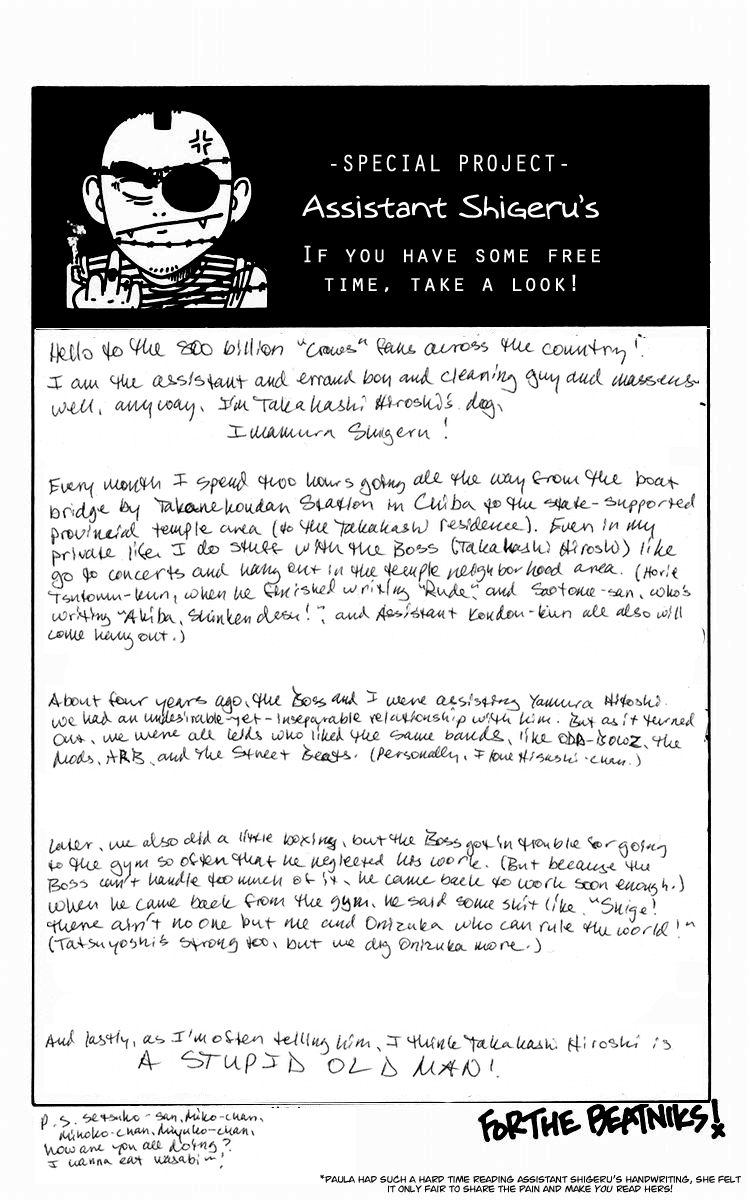 -SPECIAL PROJECT-
Assistant Shigeru's
IF YOU HAVE SOME FREE
TIME, TAKE A LOOK!
Hello to the 800 billion "Crows" fans across the country!
I am the assistant and errand boy and cleaning guy and masseus-
well, anyway, I'm Takahashi Hiroshi's dog,
Imamura Shigeru!
Every month I spend two hours going all the way from the boat
bridge by Takanekoudan Station in Chiba to the state-supported
provincial temple area (to the Takahashi residence). Even in my
private life I do stuff with the Boss (Takahashi Hiroshi) like
go to concerts and hang out in the temple neighborhood area. (Horie
Tsutomu-kun, when he finished writing "Rude" and Saotome-san, who's
writing "Akiba, Shinken desu!", and Assistant Kondou-kun all also will
come hang out.)
About four years ago, the Boss and I were assisting Yamura Hitoshi.
We had an undesirable-yet-inseparable relationship with him. But as it turned
out, we were all kids who liked the same bands, like ODA-BOWZ, the
Mods, ARB, and the Street Beats. (Personally, I love Hisashi-chan.)
Later, we also did a little boxing, but the Boss got in trouble for going
to the gym so often that he neglected his work. (But because the
Boss can't handle too much of it, he came back to work soon enough.)
When he came back from the gym, he said some shit like, "Shige!
There ain't no one but me and Onizuka who can rule the world!"
(Tatsuyoshi's strong too, but we dig Onizuka more.)
And lastly, as I'm often telling him, I think Takahashi Hiroshi is
A STUPID OLD MAN!
P.S. Setsuko-san, Miko-chan,
Mihoko-chan, Miyuko-chan,
how are you all doing?
I wanna eat wasabi~!
FOR THE BEATNIKS!
*PAULA HAD SUCH A HARD TIME READING ASSISTANT SHIGERU'S HANDWRITING, SHE FELT
IT ONLY FAIR TO SHARE THE PAIN AND MAKE YOU READ HERS!